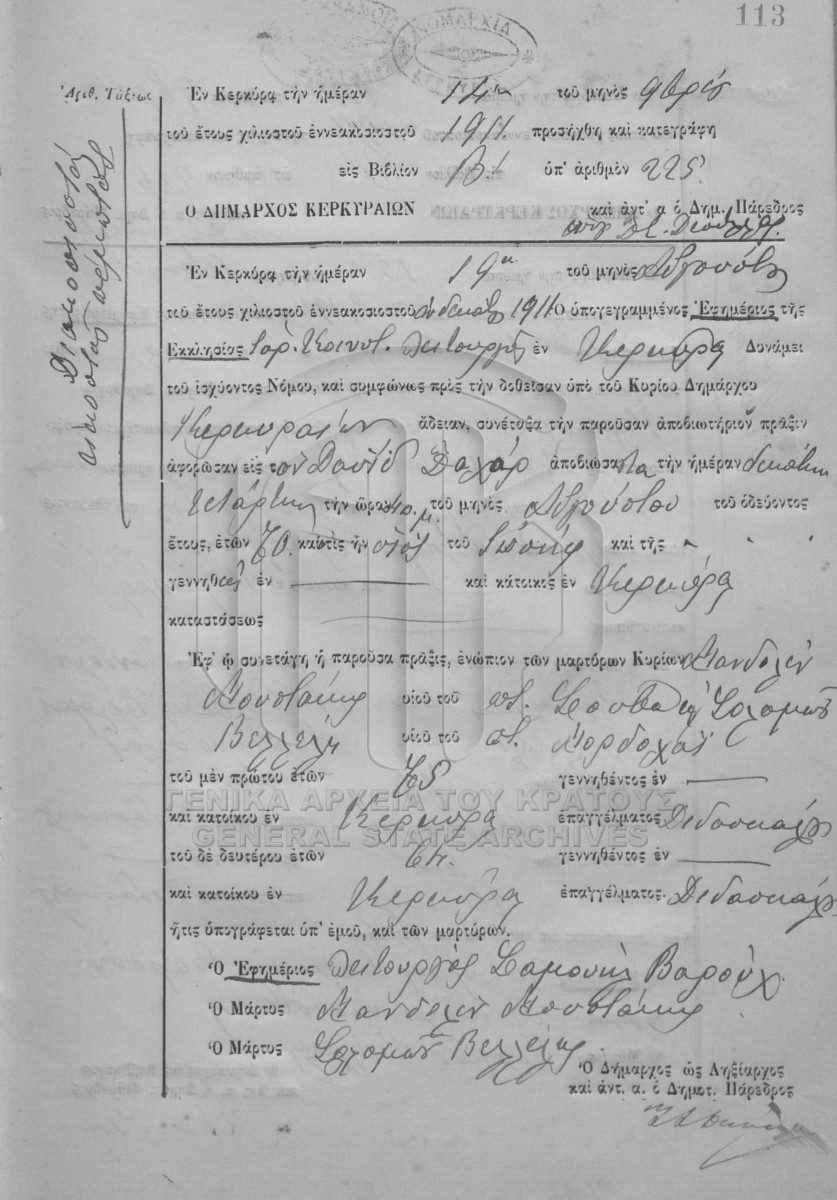 113
ΝΟΜΑΡΧΙΑ
Ἀριθ. Τάξεως
Διακοσιοστὸς
εἰκοστὸς πέμπτος
Ἐν Κερκύρᾳ τὴν ἡμέραν 14ην τοῦ μηνὸς 9βρίου
τοῦ ἔτους χιλιοστοῦ ἐννεακοσιοστοῦ 1911. προσήχθη καὶ κατεγράφη
εἰς Βιβλίον Β' ὑπ' ἀριθμὸν 225.
Ὁ ΔΗΜΑΡΧΟΣ ΚΕΡΚΥΡΑΙΩΝ καὶ ἀντ' α ὁ Δημ. Πάρεδρος
Ἐν Κερκύρᾳ τὴν ἡμέραν 19η τοῦ μηνὸς Αὐγούστου
τοῦ ἔτους χιλιοστοῦ ἐννεακοσιοστοῦ ἑνδεκάτου 1911 Ὁ ὑπογεγραμμένος Ἐφημέριος τῆς
Ἐκκλησίας Ἰσρ. Κοινότ. Λειτουργὸς ἐν Κερκύρᾳ Δυνάμει
τοῦ ἰσχύοντος Νόμου, καὶ συμφώνως πρὸς τὴν δοθεῖσαν ὑπὸ τοῦ Κυρίου Δημάρχου
Κερκυραίων ἄδειαν, συνέταξα τὴν παροῦσαν ἀποβιωτήριον πρᾶξιν
ἀφορῶσαν εἰς τὸν Δαυῒδ ἀποβιώσαντα τὴν ἡμέραν δεκάτην
τετάρτην τὴν ὥραν π.μ. τοῦ μηνὸς Αὐγούστου τοῦ ὁδεύοντος
ἔτους, ἐτῶν 70 καὶ τις ἦν υἱὸς τοῦ Ἰωσὴφ καὶ τῆς
γεννηθεὶς ἐν — καὶ κάτοικος ἐν Κερκύρᾳ
καταστάσεως
Ἐφ' ᾧ συνετάγη ἡ παροῦσα πρᾶξις, ἐνώπιον τῶν μαρτύρων Κυρίων Μανδολὶν
Μουστάκη υἱοῦ τοῦ ποτ. Σαμουὴλ Σολομὼν
Βελλέλη υἱοῦ τοῦ ποτ. Μορδοχάϊ
τοῦ μὲν πρώτου ἐτῶν 75 γεννηθέντος ἐν —
καὶ κατοίκου ἐν Κερκύρᾳ ἐπαγγέλματος Διδασκάλου
τοῦ δὲ δευτέρου ἐτῶν 64. γεννηθέντος ἐν —
καὶ κατοίκου ἐν Κερκύρᾳ ἐπαγγέλματος Διδασκάλου
ἥτις ὑπογράφεται ὑπ' ἐμοῦ, καὶ τῶν μαρτύρων.
Ὁ Ἐφημέριος Λειτουργὸς Σαμουὴλ Βαροὺχ
Ὁ Μάρτυς Μανδολὶν Μουστάκης
Ὁ Μάρτυς Σολομὼν Βελλέλης
Ὁ Δήμαρχος ὡς Ληξίαρχος
καὶ ἀντ. α. ὁ Δημοτ. Πάρεδρος
ΓΕΝΙΚΑ ΑΡΧΕΙΑ ΤΟΥ ΚΡΑΤΟΥΣ
GENERAL STATE ARCHIVES